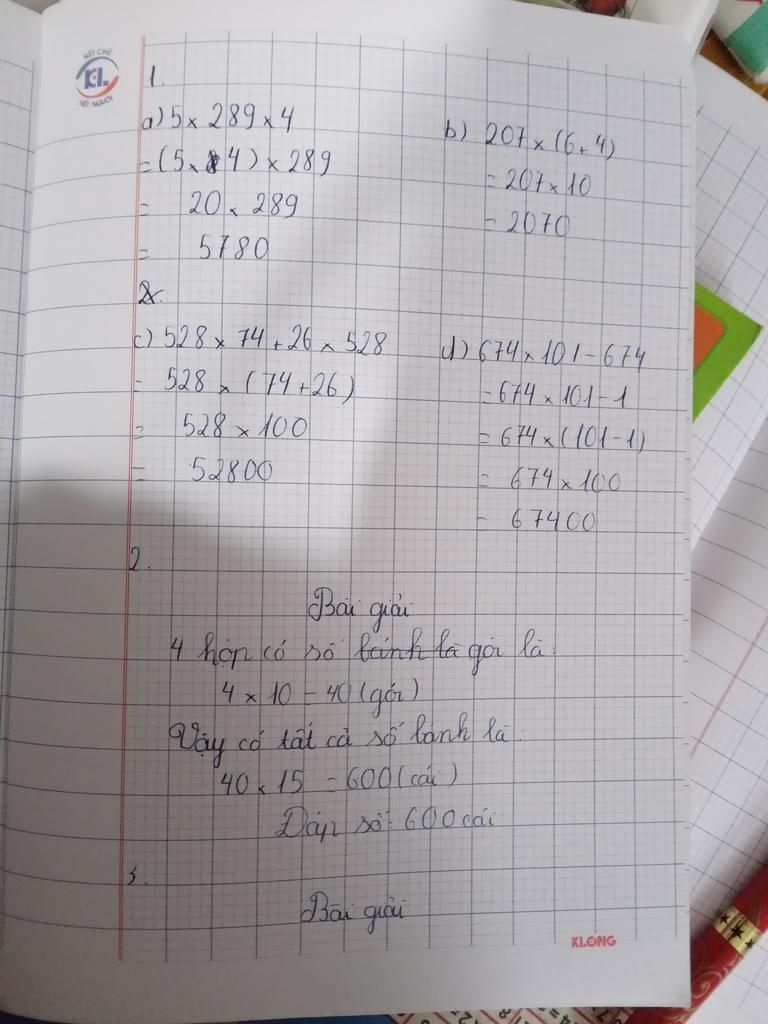 NÉT CHỮ
KL
NẾT NGƯỜI
1.
a) 5 × 289 × 4
= (5 × 4) × 289
= 20 × 289
= 5780
b) 207 × (6 + 4)
= 207 × 10
= 2070
2.
c) 528 × 74 + 26 × 528
= 528 × (74 + 26)
= 528 × 100
= 52800
d) 674 × 101 - 674
= 674 × 101 - 1
= 674 × (101 - 1)
= 674 × 100
= 67400
2.
Bài giải
4 hộp có số bánh là gói là:
4 × 10 = 40 (gói)
Vậy có tất cả số bánh là:
40 × 15 = 600 (cái)
Đáp số: 600 cái
3.
Bài giải
KLONG